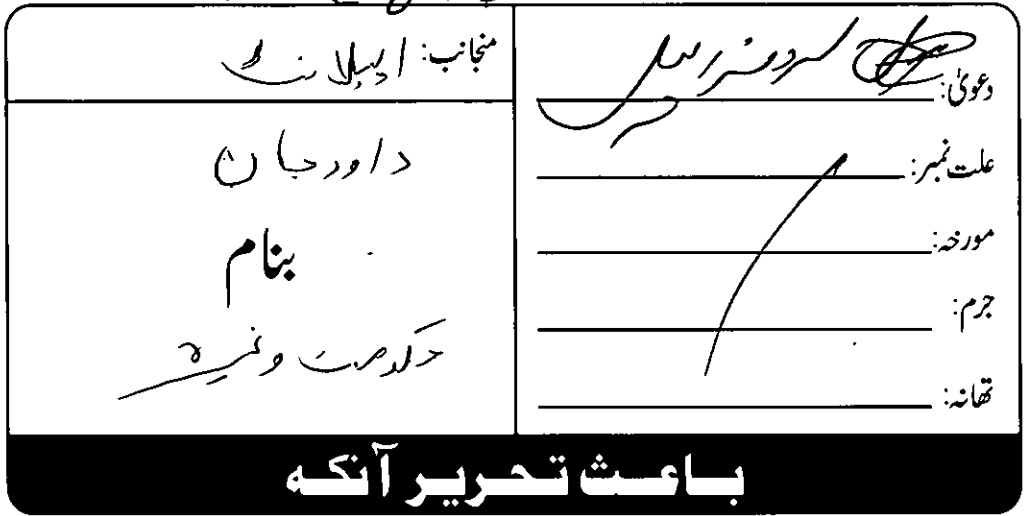 دعویٰ: سروس اپیل
علت نمبر:
مورخہ:
جرم:
تھانہ:
منجانب: اپیلانٹ
داور جان
بنام
حکومت وغیرہ
باعث تحریر آنکہ